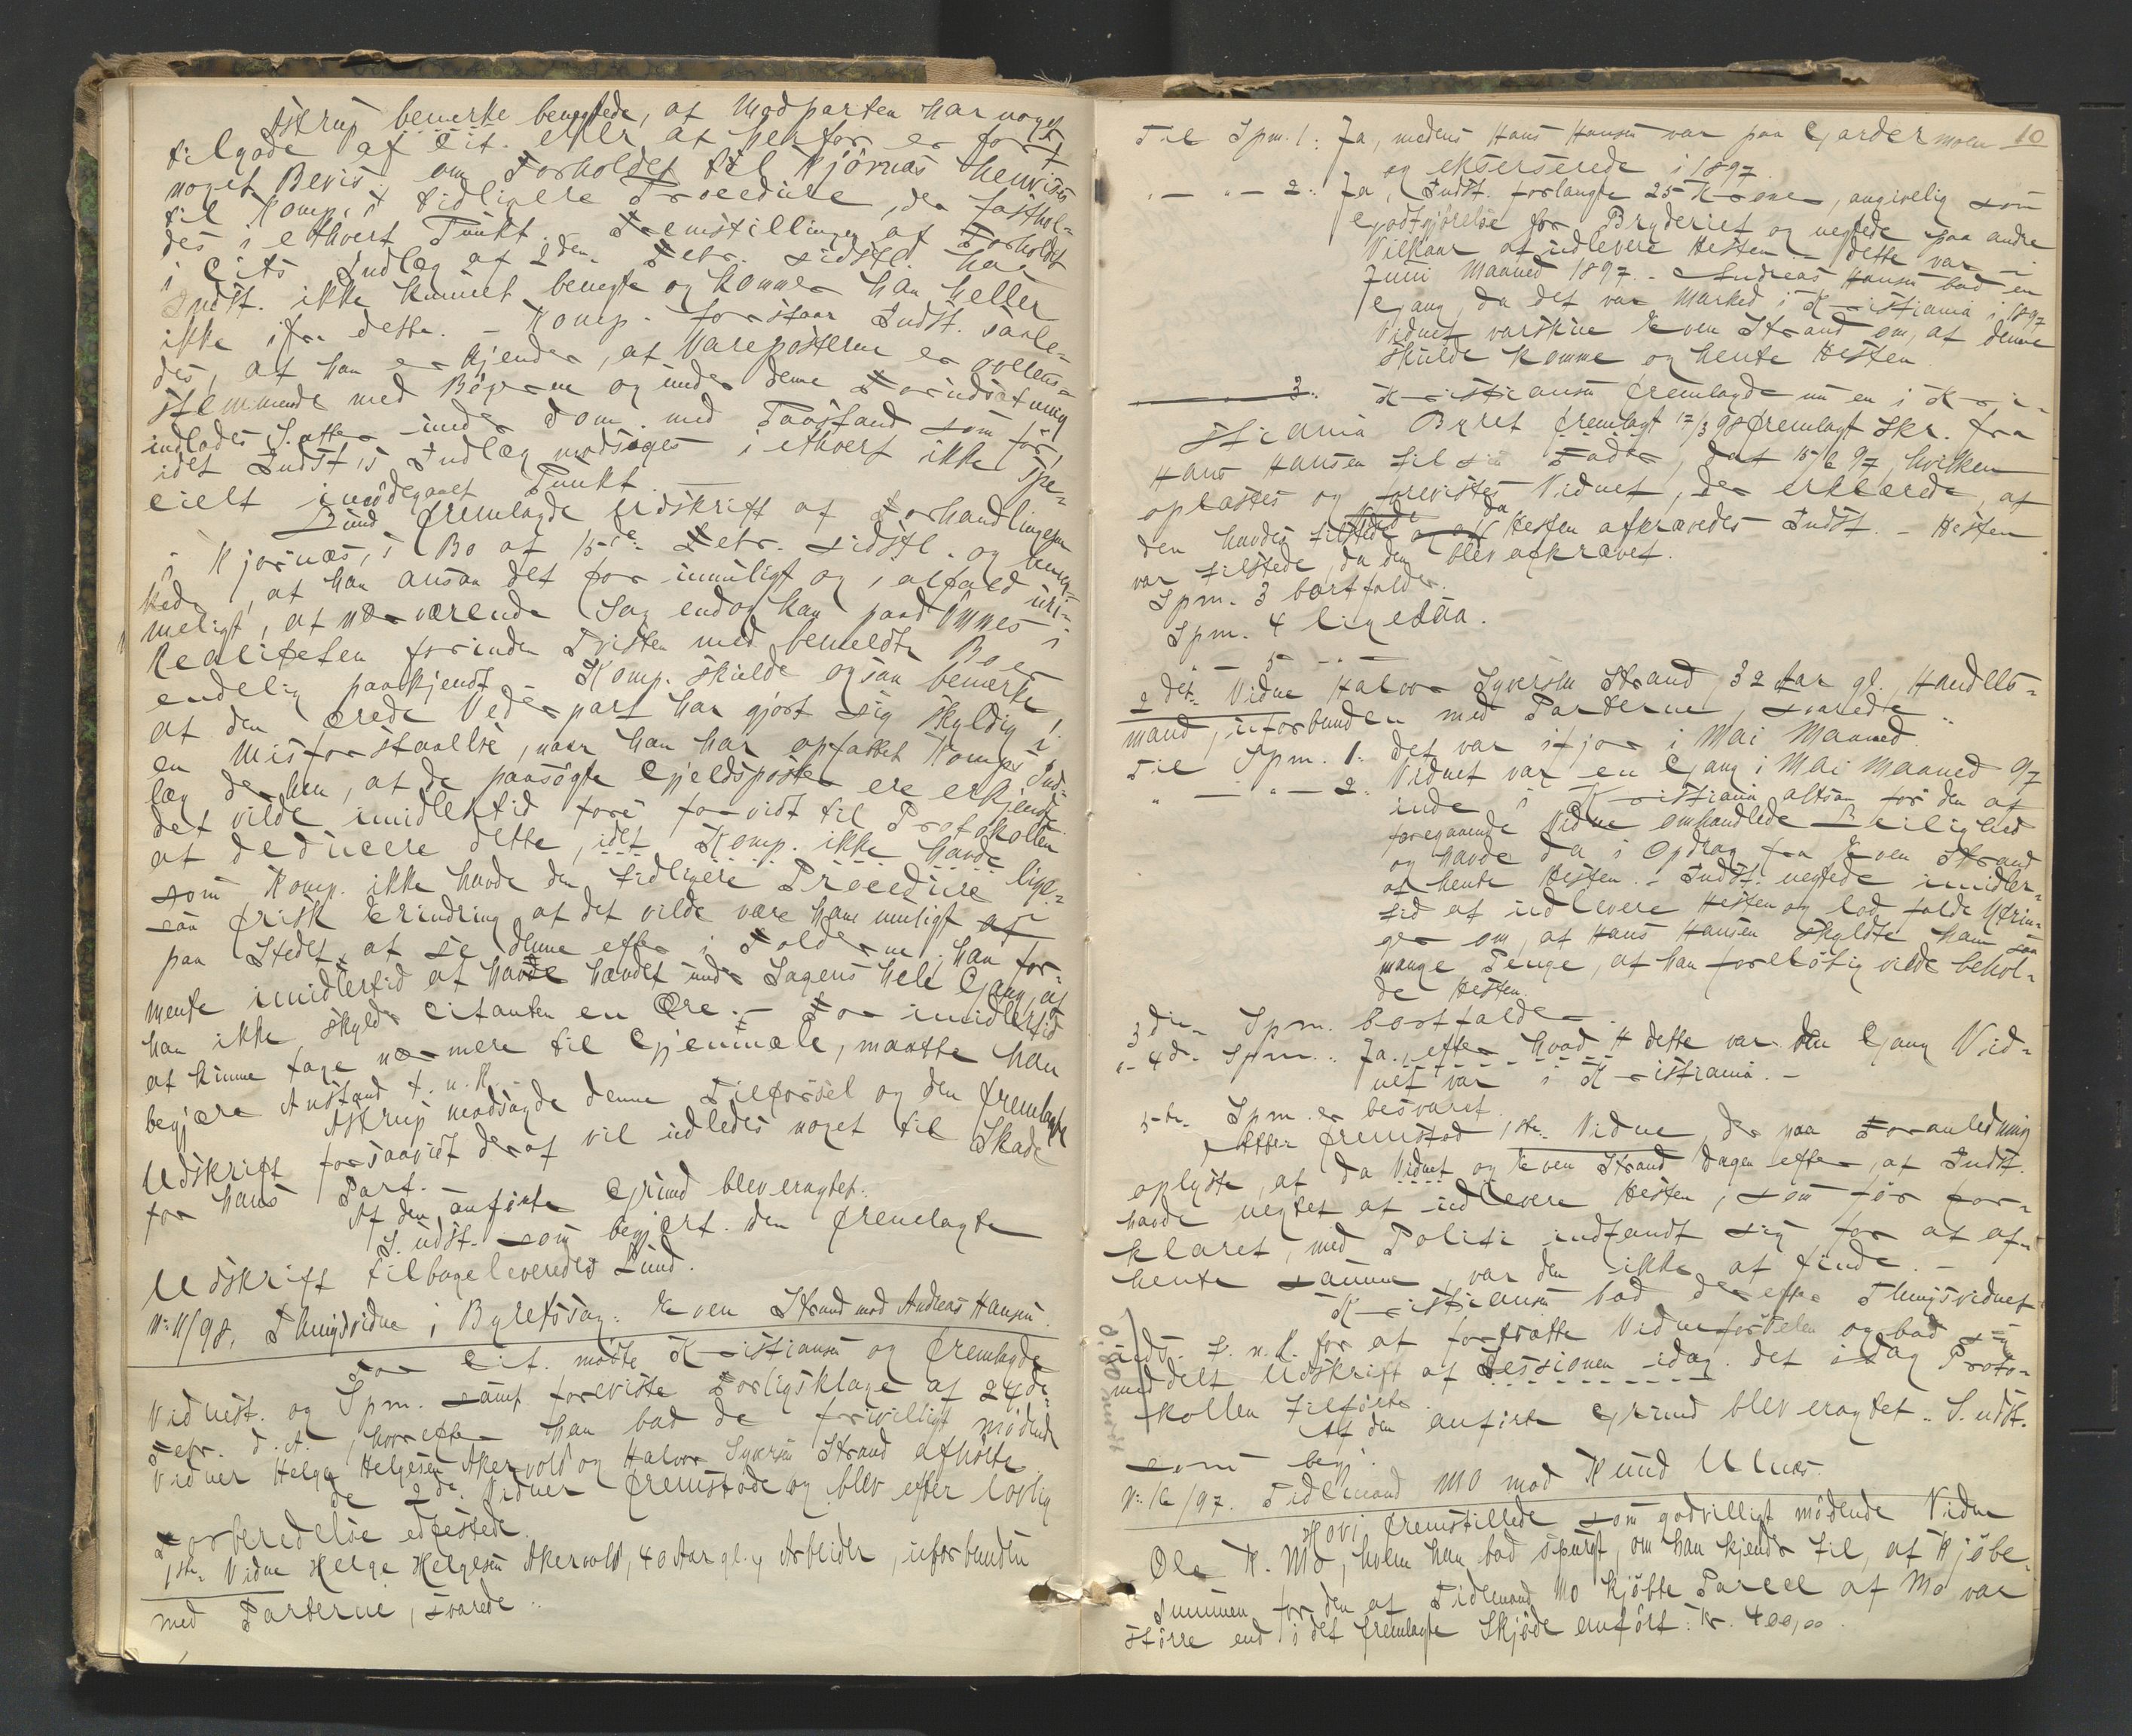 Astrup bemerke benegtede, at Modparten har noget
tilgode af Cit. eller at herfor er fört
noget Bevis; om Forholdet til Kjörnæs henvises
til Komp.s tidligere Procedure, der fasthol-
des i ethvert Punkt. Fremstillingen af Forholdet
i Cits Indlæg af 2den Febr. sidstl. har
Indst. ikke kunnet benegte og kommer han heller
ikke ifra dette. – Komp. forstaar Indst. saale-
des, at han erkjender, at Vareposterne er overens-
stemmende med Bögerne og under denne Forudsætning
indlodes S. atter under Dom med Paastand som för,
idet Indst.s Indlæg modsiges i ethvert ikke spe-
cielt imödegaaet Punkt. –
Lund fremlagde Udskrift af Forhandlingerne
i Kjörnæs's Bo af 15de Febr. sidstl. og bemær-
kede, at han ansaa det for umuligt og ialfald uri-
meligt, at nærværende Sag endog kan paadömmes i
Realiteten forinden Tvisten med bemeldte Bo er
endelig paakjendt. Komp. skulde ogsaa bemerke,
at den ærede Vederpart har gjort sig skyldig i
en Misforstaaelse, naar han har opfattet Komps Ind-
læg derhen, at de paasögte Gjeldsposter ere erkjendte.
det vilde imidlertid före for vidt til Protokollen
at deducere dette, idet Komp. ikke havde lige-
som Komp. ikke havde den tidligere Procedure i
saa frisk Erindring at det vilde være ham muligt af
paa Stedet at se denne efter i Foldene; han for-
mente imidlertid at have hævdet under Sagens hele Gang, at
han ikke skylder Citanten en Öre. – For imidlertid
at kunne tage nærmere til Gjenmæle, maatte han
begjære Anstand t. n. R. –
Astrup modsagde denne Tilförsel og den fremlagte
Udskrift forsaavidt deraf vil udledes noget til Skade
for hans Part. –
Af den anförte Grund blev eragtet:
S. udst. som begjært. den fremlagte
Udskrift tilbageleveredes Lund.
No 11/98. Thingsvidne i Byretssag: Even Strand mod Andreas Hansen.
For Cit. mödte Kristiansen og fremlagde
Vidnest. og Spm. samt foreviste Forligsklage af 24de
Febr. d. A., hvorefter han bad de frivilligt mödende
Vidner Helge Helgesen Akervold og Halvor Syversen Strand afhörte.
de 2de Vidner fremstode og blev efter lovlig
Forberedelse edfæstede.
1ste Vidne Helge Helgesen Akervold, 40 Aar gl., Arbeider, uforbunden
med Parterne, svarede:
10
Til Spm. 1: Ja, medens Hans Hansen var paa Gardermoen
og ekserserede i 1897.
" – " – 2: Ja, Indst. forlangte 25 Kroner, angivelig som
Godtgjörelse for Bryderiet og negtede paa andre
Vilkaar at udlevere Hesten. – dette var i
Juni Maaned 1897. – Andreas Hansen bad en
Gang, da det var Marked i Kristiania i 1897
Vidnet varskue Even Strand om, at denne
skulde komme og hente Hesten.
3: Kristiansen fremlagde nu en i Kri-
stiania Byret fremlagt 17/3 98 fremlagt Skr. fra
Hans Hansen til sin Fader, dat 15/6 97, hvilken
oplæstes og forevistes Vidnet, der erklærede, at
den havdes tilstede da Hesten afkrævedes Indst. – Hesten
var tilstede, da den blev afkrævet.
Spm. 3 bortfalder.
Spm. 4 ligesaa.
" – 5 – " –
2det Vidne Halvor Syversen Strand 32 Aar gl., Handels-
mand, uforbunden med Parterne, svarede:
Til Spm. 1: det var ifjor i Mai Maaned.
" – " – 2: Vidnet var en Gang i Mai Maaned 97
inde i Kristiania altsaa för den af
foregaaende Vidne omhandlede Leilighed
og havde da i Opdrag fra Even Strand
at hente Hesten. – Indst. negtede imidler-
tid at udlevere Hesten og lod falde Ytrin-
ger om, at Hans Hansen skyldte ham saa
mange Penge, at han forelöbig vilde behol-
de Hesten.
3die Spm. bortfalder.
" – 4de Spm.: Ja, efter hvad H dette var den Gang Vid-
net var i Kristiania. –
5te Spm. er besvaret.
Atter fremstod 1ste Vidne, der paa Foranledning
oplyste, at da Vidnet og Even Strand Dagen efter, at Indst.
havde negtet at udlevere Hesten, som för for-
klaret, med Politi indfandt sig for at af-
hente samme, var den ikke at finde. –
Kristiansen bad derefter Thingsvidnet
uds. t. n. R. for at fortsætte Vidneförselen og bad sig
meddelt Udskrift af Sessionen idag. det idag Proto-
kollen tilförte.
Af den anförte Grund blev eragtet: S. udst.
som begj.
No 16/97. Tidemand Mo mod Knud Ulnes.
Hovi fremstillede som godvilligt mödende Vidne
Ole K. Mo, hvem han bad spurgt, om han kjender til, at Kjöbe-
summen for den af Tidemand Mo kjöbte Parcel af Mo var
större end i det fremlagte Skjöde anfört: Kr. 400,00.